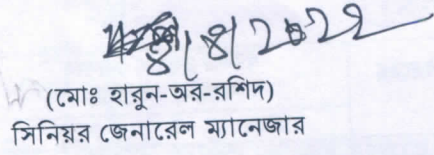 8|8|2022
(মোঃ হারুন-অর-রশিদ)
সিনিয়র জেনারেল ম্যানেজার